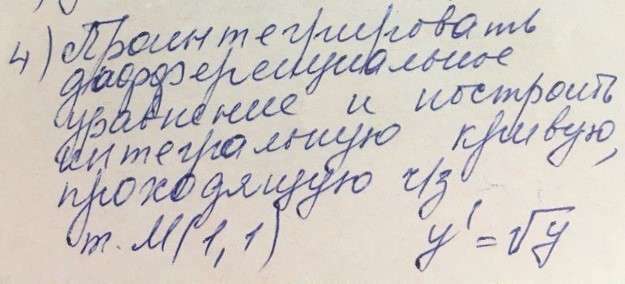 4) Проинтегрировать
дифференциальное
уравнение и построить
интегральную кривую,
проходящую ч/з
т. М(1,1) y' = √y